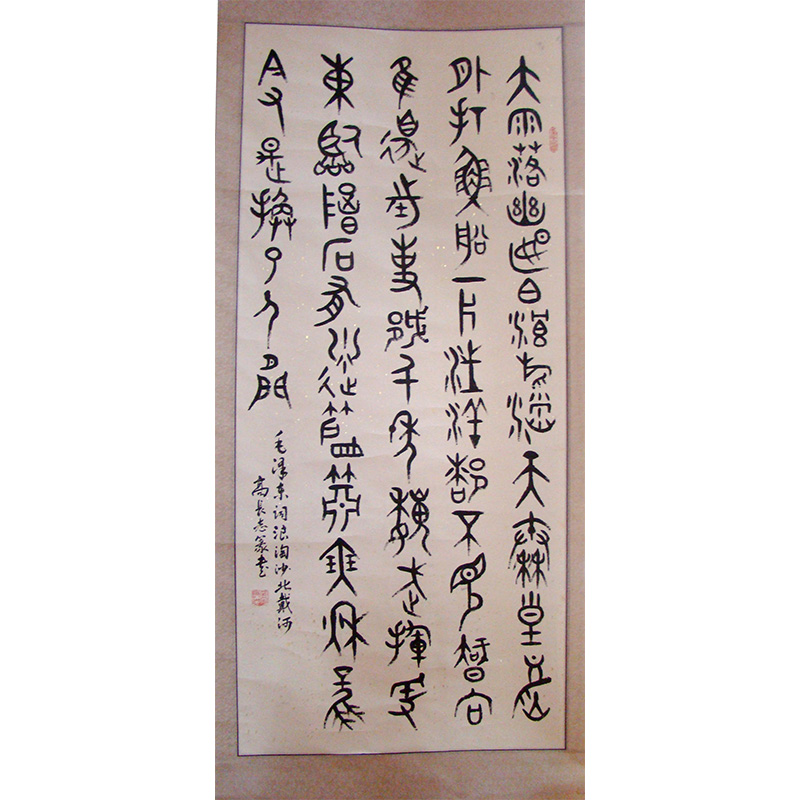 大雨落幽燕白浪滔天秦皇島
外打魚船一片汪洋都不見知向
誰邊往事越千年魏武揮鞭
東臨碣石有遺篇蕭瑟秋風
今又是換了人間
毛澤东词浪淘沙北戴河
高长志篆书